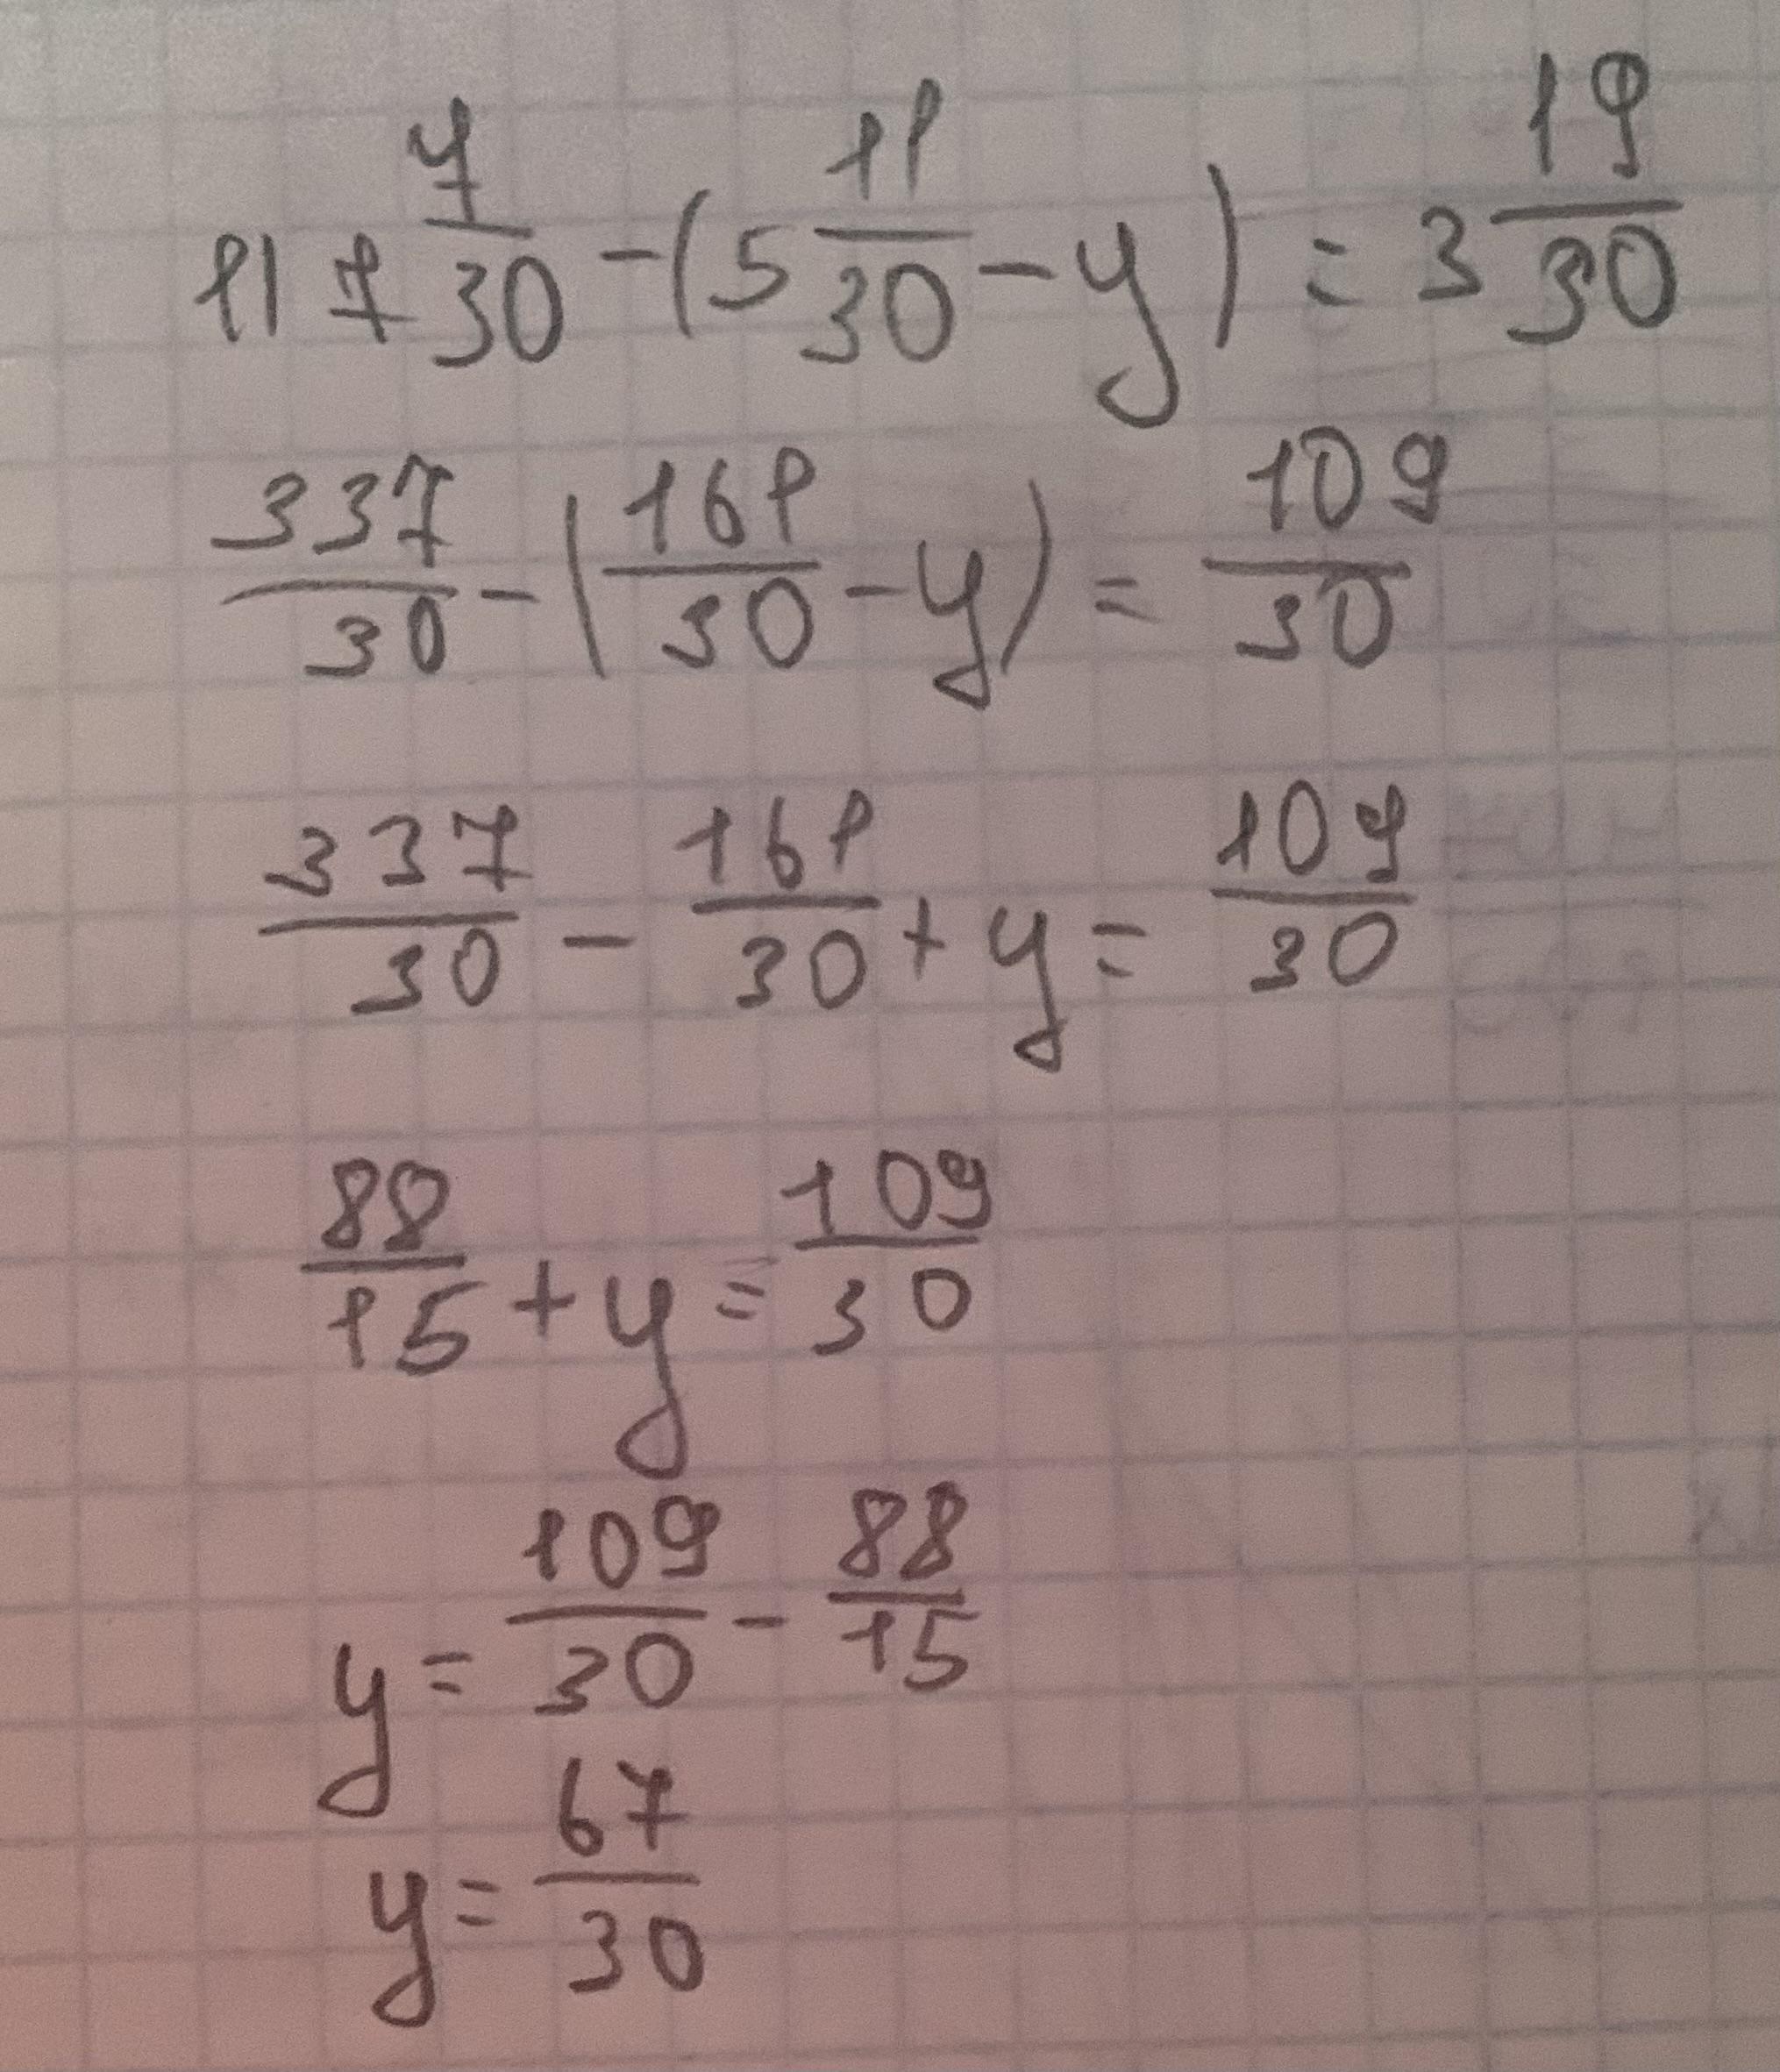 11 7/30 - (5 11/30 - y) = 3 19/30
337/30 - (161/30 - y) = 109/30
337/30 - 161/30 + y = 109/30
88/15 + y = 109/30
y = 109/30 - 88/15
y = 67/30